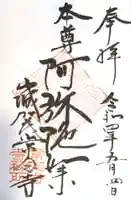 奉拝
令和四年五月四日
本尊
阿弥陀如来